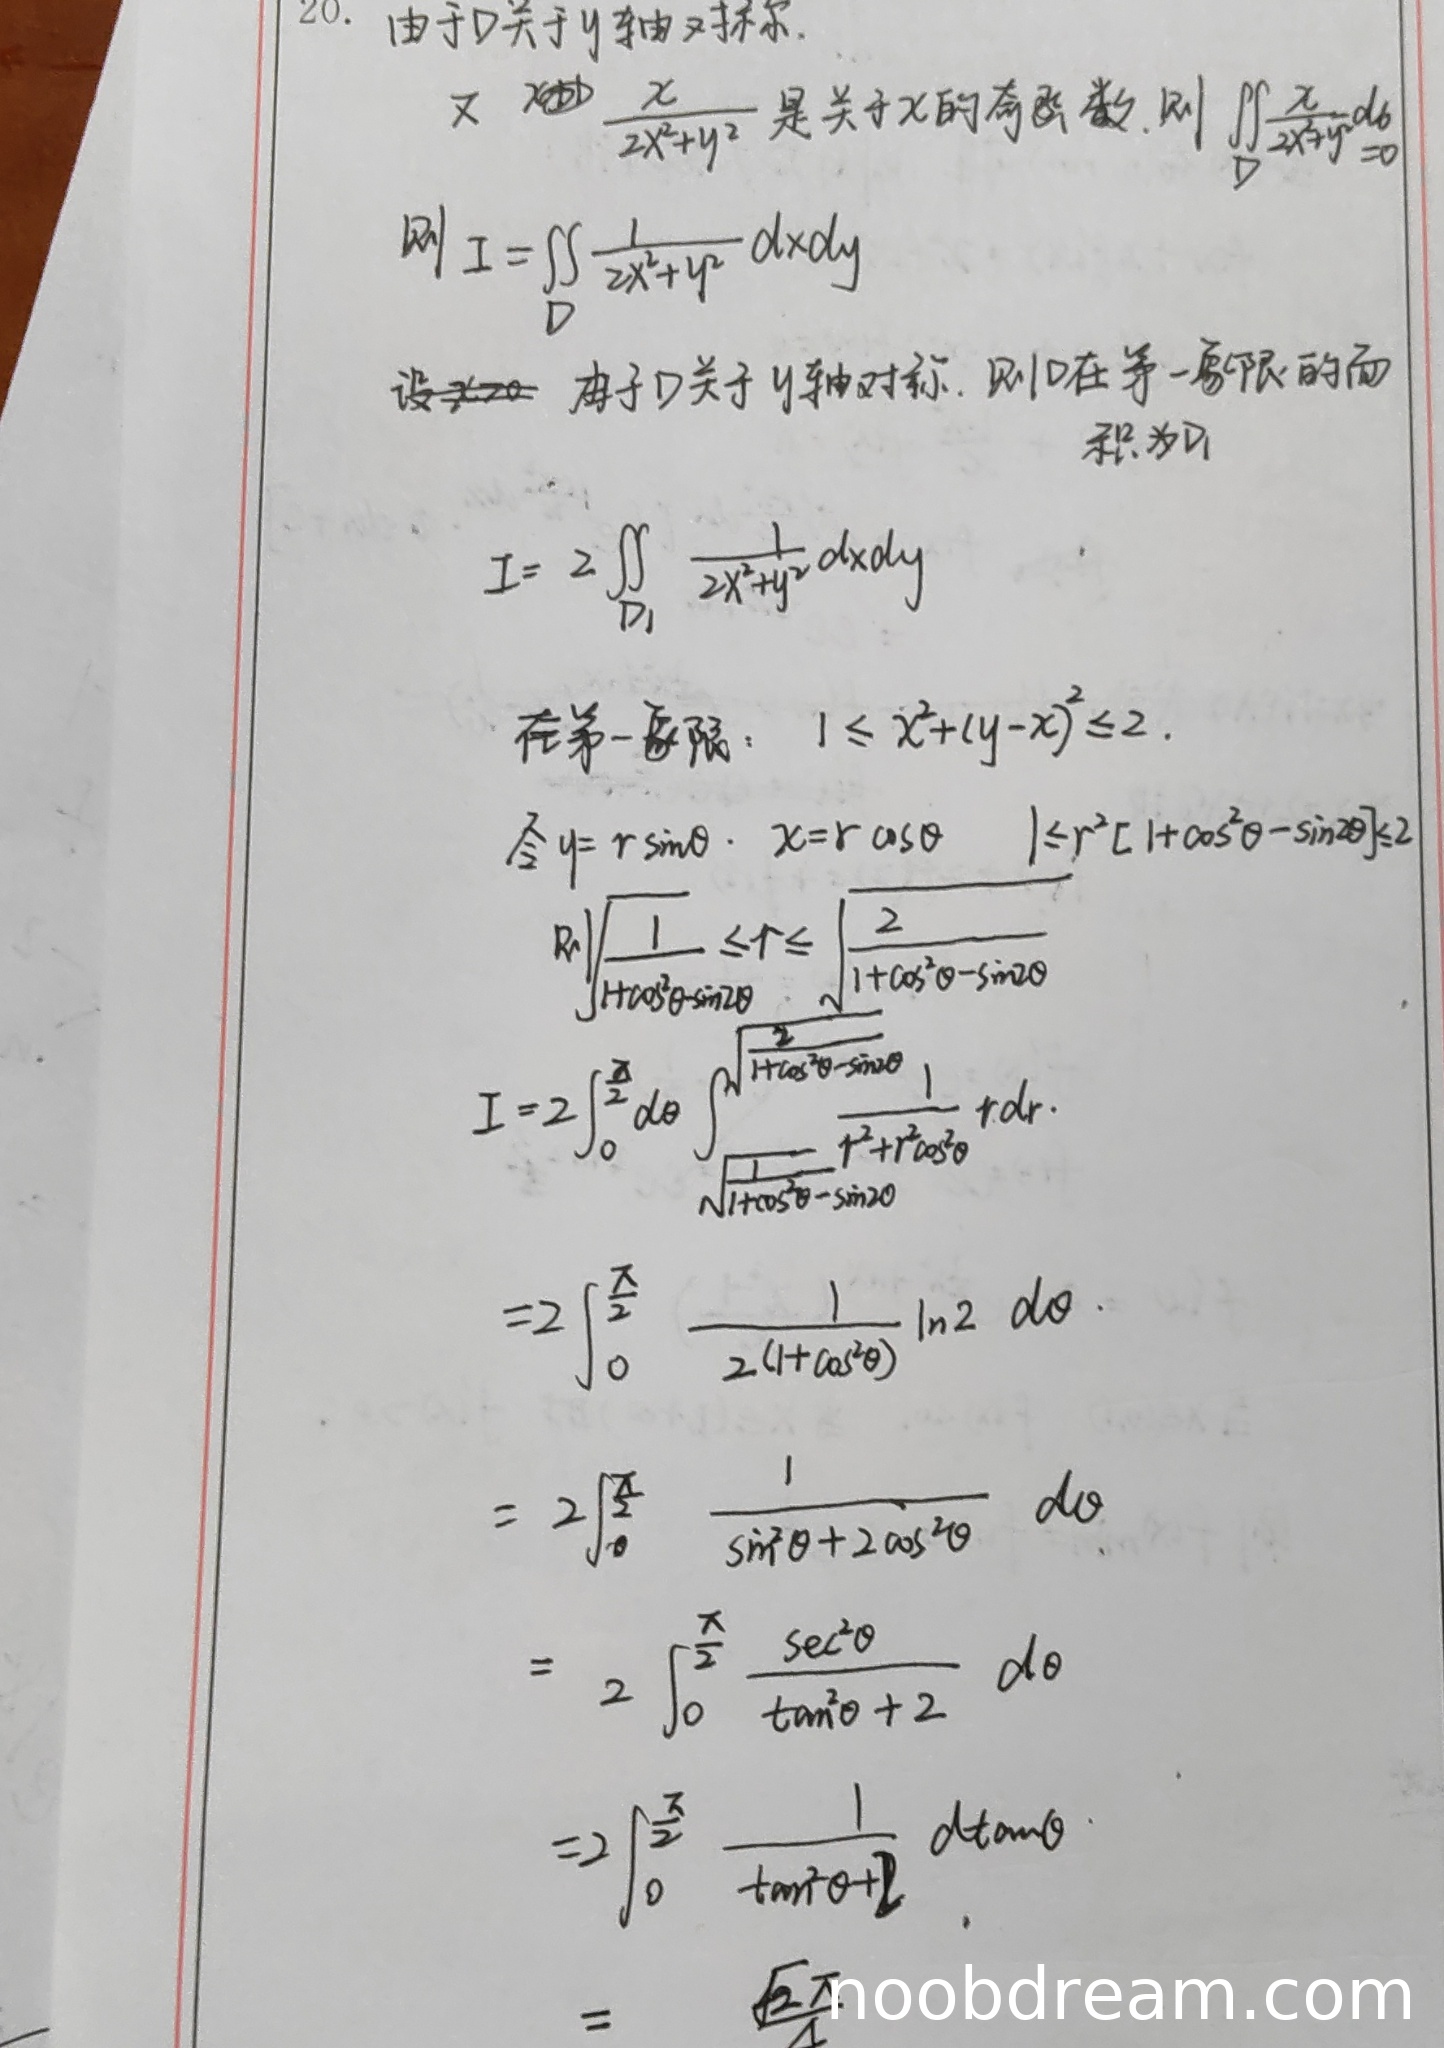 20. 由于D关于y轴对称.
又 x/(2x²+y²) 是关于x的奇函数. 则 ∬_D x/(2x²+y²) dσ =0
则 I = ∬_D 1/(2x²+y²) dxdy
设 由于D关于y轴对称. 则D在第一象限的面
积为D₁
I = 2∬_D₁ 1/(2x²+y²) dxdy
在第一象限: 1 ≤ x²+(y-x)² ≤ 2.
令 y= r sinθ. x=r cosθ 1≤r²[1+cos²θ-sin2θ]≤2
则 √(1/(1+cos²θ-sin2θ)) ≤r≤ √(2/(1+cos²θ-sin2θ))
I = 2∫_0^(π/2) dθ ∫_√(1/(1+cos²θ-sin2θ))^√(2/(1+cos²θ-sin2θ)) 1/(r²+r²cos²θ) rdr.
=2∫_0^(π/2) 1/(2(1+cos²θ)) ln2 dθ.
= 2∫_0^(π/2) 1/(sin²θ+2cos²θ) dθ
= 2∫_0^(π/2) sec²θ/(tan²θ+2) dθ
=2∫_0^(π/2) 1/(tan²θ+2) dtanθ.
= √2π/4
noobdream.com